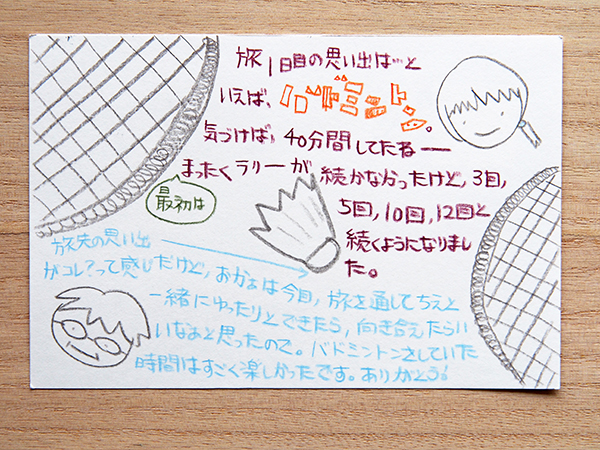 旅1日目の思い出は…と
いえば、バドミントン。
気づけば、40分間してたね――
まったくラリーが続かなかったけど、3回,
最初は
5回,10回,12回と
続くようになりまし
た。
旅先の思い出
がコレ?って感じだけど、おかよは今回、旅を通してちえと
一緒にゆったりとできたら、向き合えたらい
いなぁと思ったので。バドミントンをしていた
時間はすごく楽しかったです。ありがとう!